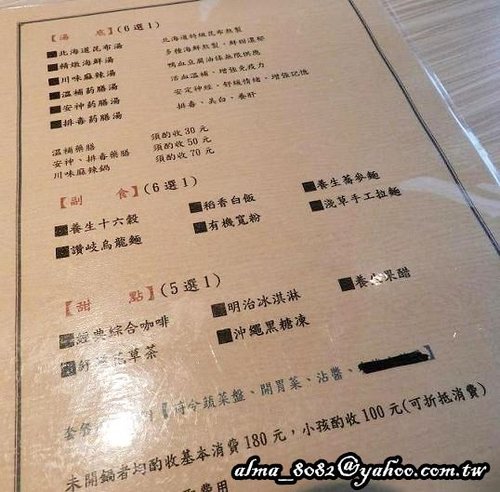 【湯 底】(6選1)
■北海道昆布湯 北海道特級昆布熬製
■精燉海鮮湯 多種海鮮熬製、鮮甜濃郁
■川味麻辣湯 鴨血豆腐油條無限供應
■溫補药膳湯 活血溫補、增強免疫力
■安神药膳湯 安定神經、舒緩情緒、增強記憶
■排毒药膳湯 排毒、美白、養肝
溫補藥膳 須酌收30元
安神、排毒藥膳 須酌收50元
川味麻辣鍋 須酌收70元
【副 食】(6選1)
■養生十六穀 ■稻香白飯 ■養生蕎麥麵
■讚岐烏龍麵 ■有機寬粉 ■淺草手工拉麵
【甜 點】(5選1)
■經典綜合咖啡 ■明治冰淇淋 ■養生果醋
草茶 ■沖繩黑糖凍
套餐 【時令蔬菜盤、開胃菜、沾醬、 】
未開鍋者均酌收基本消費180元，小孩酌收100元(可折抵消費)
費用
alma_8082@yahoo.com.tw